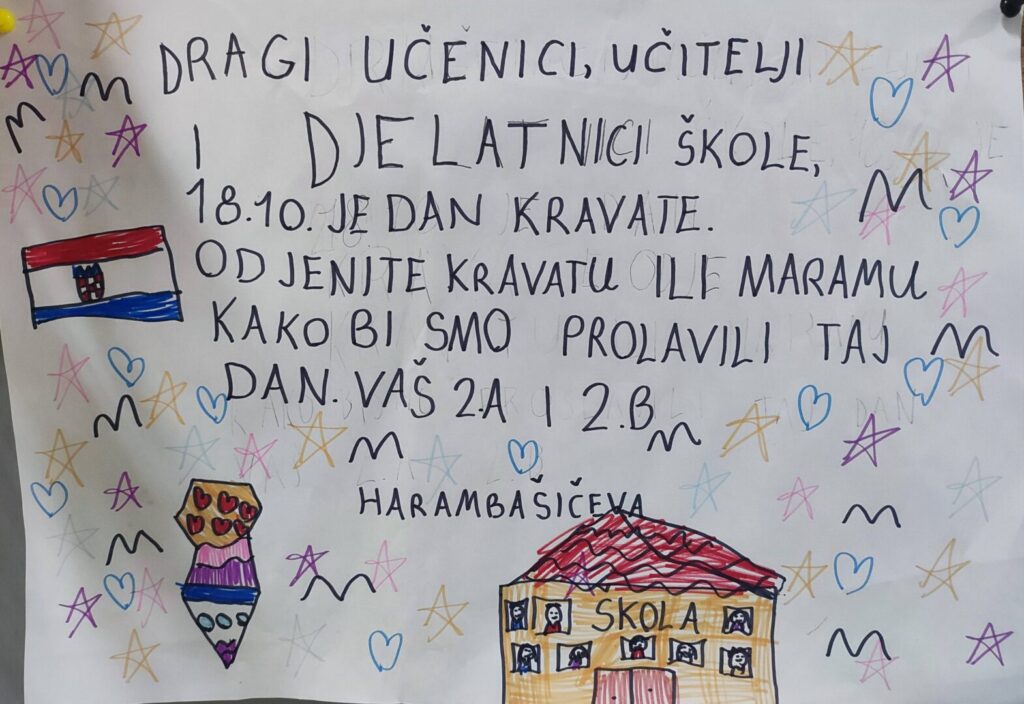 DRAGI UČENICI, UČITELJI
I DJELATNICI ŠKOLE,
18.10. JE DAN KRAVATE.
ODJENITE KRAVATU ILI MARAMU
KAKO BI SMO PROLAVILI TAJ
DAN. VAŠ 2.A I 2.B
HARAMBAŠIČEVA
ŠKOLA